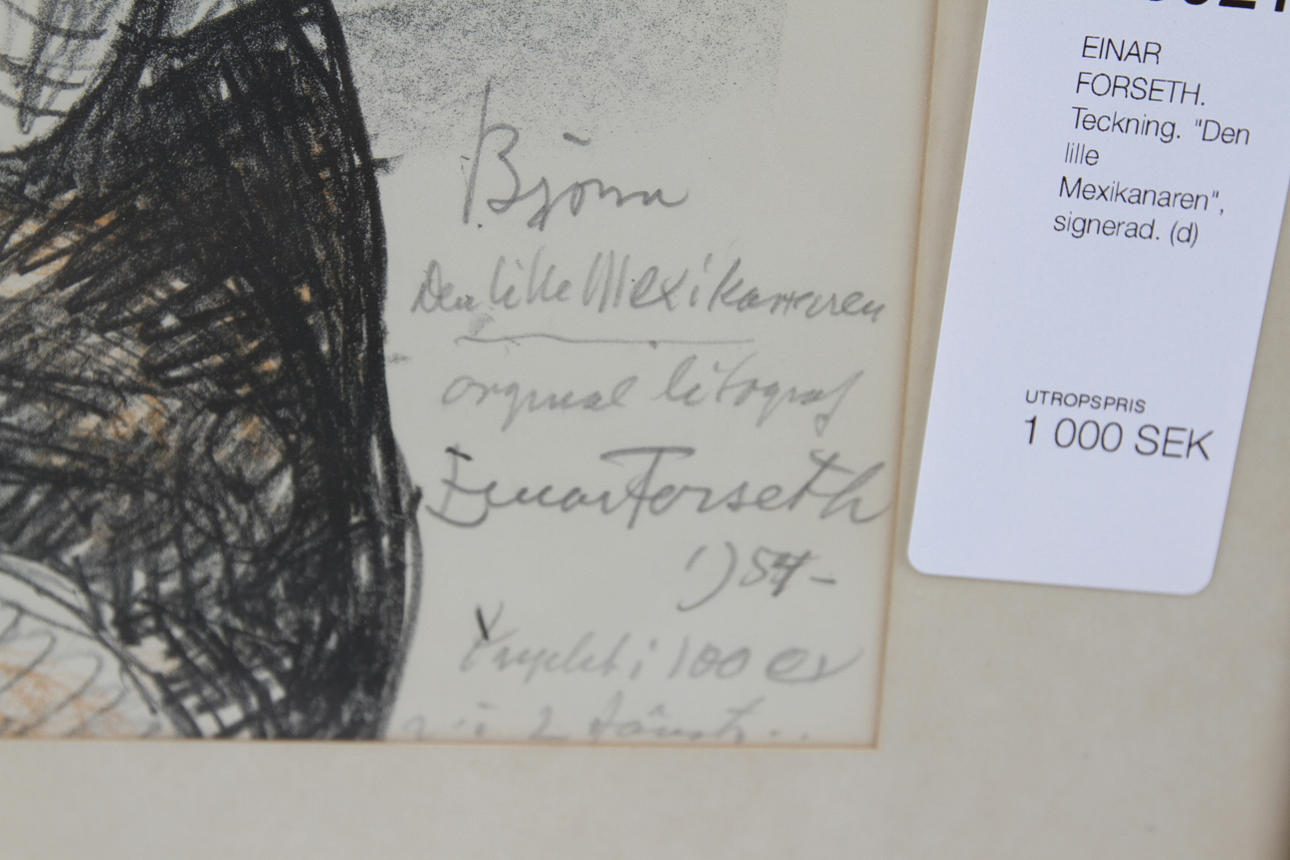 Björn
Den lille Mexikanaren
orginal litograf
Einar Forseth
1954-
Tryckt i 100 ex
i 2
EINAR
FORSETH.
Teckning. "Den
lille
Mexikanaren",
signerad. (d)
UTROPSPRIS
1 000 SEK